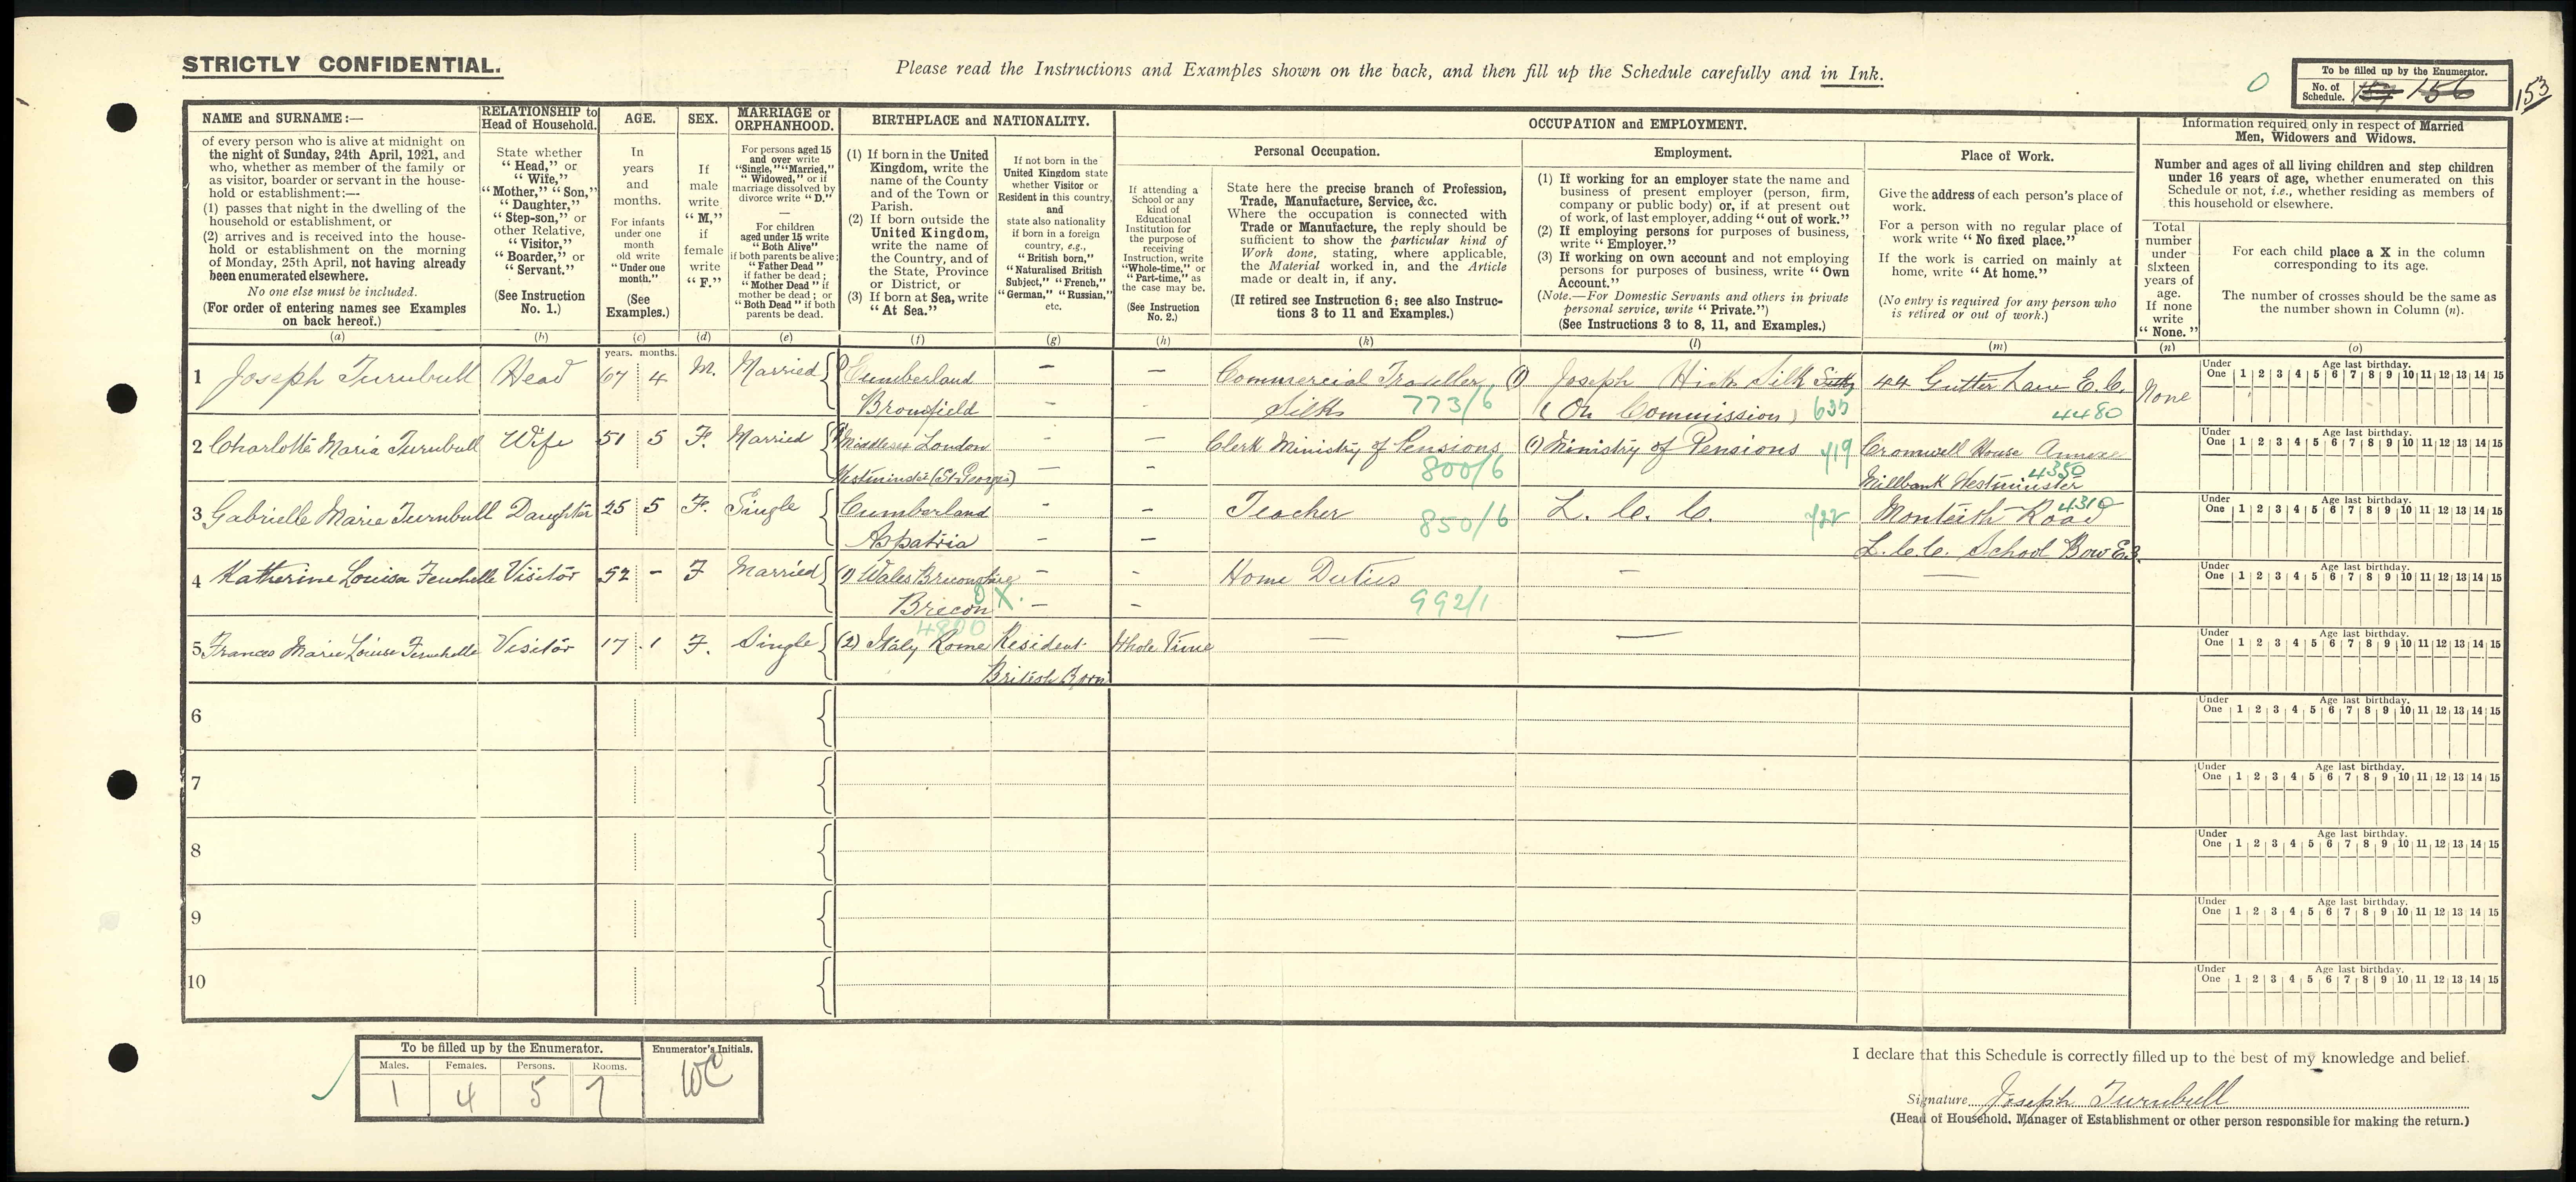 STRICTLY CONFIDENTIAL.
Please read the Instructions and Examples shown on the back, and then fill up the Schedule carefully and in Ink.
To be filled up by the Enumerator.
No. of Schedule. 156
153
NAME and SURNAME:—
of every person who is alive at midnight on
the night of Sunday, 24th April, 1921, and
who, whether as member of the family or
as visitor, boarder or servant in the house-
hold or establishment:—
(1) passes that night in the dwelling of the
household or establishment, or
(2) arrives and is received into the house-
hold or establishment on the morning
of Monday, 25th April, not having already
been enumerated elsewhere.
No one else must be included.
(For order of entering names see Examples
on back hereof.)
(a)
RELATIONSHIP to
Head of Household.
State whether
"Head," or
"Wife,"
"Mother," "Son,"
"Daughter,"
"Step-son," or
other Relative,
"Visitor,"
"Boarder," or
"Servant."
(See Instruction
No. 1.)
(b)
AGE.
In
years
and
months.
For infants
under one
month
old write
"Under one
month."
(See
Examples.)
(c)
years. months.
SEX.
If
male
write
"M,"
if
female
write
"F."
(d)
MARRIAGE or
ORPHANHOOD.
For persons aged 15
and over write
"Single," "Married,"
"Widowed," or if
marriage dissolved by
divorce write "D."
—
For children
aged under 15 write
"Both Alive"
if both parents be alive;
"Father Dead"
if father be dead;
"Mother Dead" if
mother be dead; or
"Both Dead" if both
parents be dead.
(e)
BIRTHPLACE and NATIONALITY.
(1) If born in the United
Kingdom, write the
name of the County
and of the Town or
Parish.
(2) If born outside the
United Kingdom,
write the name of
the Country, and of
the State, Province
or District, or
(3) If born at Sea, write
"At Sea."
(f)
If not born in the
United Kingdom state
whether Visitor or
Resident in this country,
and
state also nationality
if born in a foreign
country, e.g.,
"British born,"
"Naturalised British
Subject," "French,"
"German," "Russian,"
etc.
(g)
OCCUPATION and EMPLOYMENT.
If attending a
School or any
kind of
Educational
Institution for
the purpose of
receiving
Instruction, write
"Whole-time," or
"Part-time," as
the case may be.
(See Instruction
No. 2.)
(h)
Personal Occupation.
State here the precise branch of Profession,
Trade, Manufacture, Service, &c.
Where the occupation is connected with
Trade or Manufacture, the reply should be
sufficient to show the particular kind of
Work done, stating, where applicable,
the Material worked in, and the Article
made or dealt in, if any.
(If retired see Instruction 6; see also Instruc-
tions 3 to 11 and Examples.)
(k)
Employment.
(1) If working for an employer state the name and
business of present employer (person, firm,
company or public body) or, if at present out
of work, of last employer, adding "out of work."
(2) If employing persons for purposes of business,
write "Employer."
(3) If working on own account and not employing
persons for purposes of business, write "Own
Account."
(Note.—For Domestic Servants and others in private
personal service, write "Private.")
(See Instructions 3 to 8, 11, and Examples.)
(l)
Place of Work.
Give the address of each person's place of
work.
For a person with no regular place of
work write "No fixed place."
If the work is carried on mainly at
home, write "At home."
(No entry is required for any person who
is retired or out of work.)
(m)
Information required only in respect of Married
Men, Widowers and Widows.
Number and ages of all living children and step children
under 16 years of age, whether enumerated on this
Schedule or not, i.e., whether residing as members of
this household or elsewhere.
Total
number
under
sixteen
years of
age.
If none
write
"None."
(n)
For each child place a X in the column
corresponding to its age.
The number of crosses should be the same as
the number shown in Column (n).
(o)
1 Joseph Turnbull Head 67 4 M. Married (1) Cumberland — — Commercial Traveller, (1) Joseph Hicks Silk 44 Gutter Lane E.C. None
Bromfield — - Silks 773/6 (On Commission) 635 4480
2 Charlotte Maria Turnbull Wife 51 5 F. Married (1) Middlesex London - — Clerk Ministry of Pensions (1) Ministry of Pensions 719 Cromwell House Annexe
Westminster (St Georges) — - 800/6 4350 Millbank Westminster
3 Gabrielle Marie Turnbull Daughter 25 5 F. Single Cumberland - — Teacher 850/6 L. C. C. 722 Monteith Road 4310
Aspatria — — L.C.C. School Bow E.3.
4 Katherine Louisa Visitor 52 - F Married (1) Wales Breconshire — - Home Duties — —
Brecon — - 992/1
5 Frances Marie Louise Visitor 17 1 F. Single (2) Italy Rome Resident Whole Time — —
4800 British Born
6
7
8
9
10
Under One 1 2 3 4 5 6 7 8 9 10 11 12 13 14 15
Age last birthday.
To be filled up by the Enumerator.
Males. Females. Persons. Rooms.
1 4 5 7
Enumerator's Initials.
WC
I declare that this Schedule is correctly filled up to the best of my knowledge and belief.
Signature Joseph Turnbull
(Head of Household, Manager of Establishment or other person responsible for making the return.)